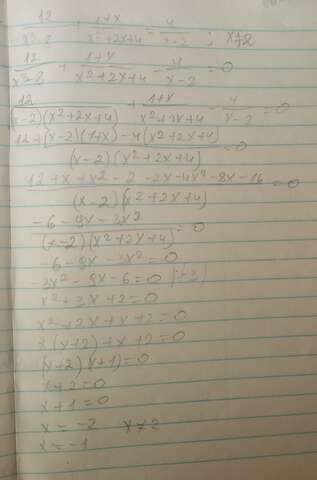 12/x³-8 + 1+x/x²+2x+4 = 4/x-2 ; x≠2
12/x³-8 + 1+x/x²+2x+4 - 4/x-2 = 0
12/(x-2)(x²+2x+4) + 1+x/x²+2x+4 - 4/x-2 = 0
12+(x-2)(1+x)-4(x²+2x+4)/(x-2)(x²+2x+4) = 0
12+x+x²-2-2x-4x²-8x-16/(x-2)(x²+2x+4) = 0
-6-9x-3x²/(x-2)(x²+2x+4) = 0
-6-9x-3x²=0
-3x²-9x-6=0 |:(-3)
x²+3x+2=0
x²+2x+x+2=0
x(x+2)+x+2=0
(x+2)(x+1)=0
x+2=0
x+1=0
x=-2 x≠2
x=-1